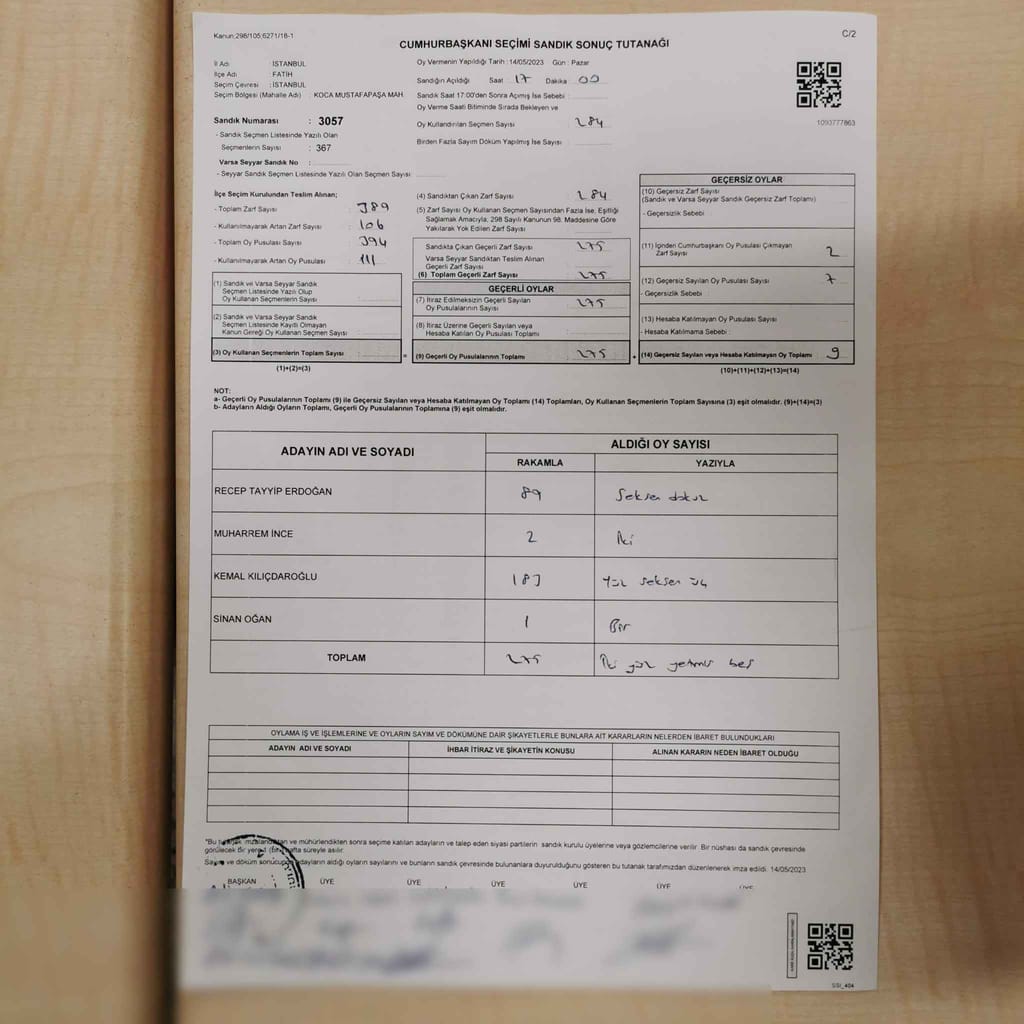 Kanun:298/105;6271/18-1
C/2
CUMHURBAŞKANI SEÇİMİ SANDIK SONUÇ TUTANAĞI
İl Adı : İSTANBUL
İlçe Adı : FATİH
Seçim Çevresi : İSTANBUL
Seçim Bölgesi (Mahalle Adı) : KOCA MUSTAFAPAŞA MAH.
Sandık Numarası : 3057
- Sandık Seçmen Listesinde Yazılı Olan
Seçmenlerin Sayısı : 367
Varsa Seyyar Sandık No :
- Seyyar Sandık Seçmen Listesinde Yazılı Olan Seçmen Sayısı :
Oy Vermenin Yapıldığı Tarih : 14/05/2023 Gün : Pazar
Sandığın Açıldığı Saat 17 Dakika 00
Sandık Saat 17:00'den Sonra Açımış İse Sebebi :
Oy Verme Saati Bitiminde Sırada Bekleyen ve
Oy Kullandırılan Seçmen Sayısı : 284
Birden Fazla Sayım Döküm Yapılmış İse Sayısı :
1093777863
İlçe Seçim Kurulundan Teslim Alınan;
- Toplam Zarf Sayısı : 389
- Kullanılmayarak Artan Zarf Sayısı : 106
- Toplam Oy Pusulası Sayısı : 394
- Kullanılmayarak Artan Oy Pusulası : 111
(1) Sandık ve Varsa Seyyar Sandık
Seçmen Listesinde Yazılı Olup
Oy Kullanan Seçmenlerin Sayısı :
(2) Sandık ve Varsa Seyyar Sandık
Seçmen Listesinde Kayıtlı Olmayan
Kanun Gereği Oy Kullanan Seçmen Sayısı :
(3) Oy Kullanan Seçmenlerin Toplam Sayısı :
(1)+(2)=(3)
(4) Sandıktan Çıkan Zarf Sayısı : 284
(5) Zarf Sayısı Oy Kullanan Seçmen Sayısından Fazla İse, Eşitliği
Sağlamak Amacıyla; 298 Sayılı Kanunun 98. Maddesine Göre
Yakılarak Yok Edilen Zarf Sayısı :
Sandıkta Çıkan Geçerli Zarf Sayısı : 275
Varsa Seyyar Sandıktan Teslim Alınan
Geçerli Zarf Sayısı :
(6) Toplam Geçerli Zarf Sayısı : 275
GEÇERLİ OYLAR
(7) İtiraz Edilmeksizin Geçerli Sayılan
Oy Pusulalarının Sayısı : 275
(8) İtiraz Üzerine Geçerli Sayılan veya
Hesaba Katılan Oy Pusulası Toplamı :
= (9) Geçerli Oy Pusulalarının Toplamı : 275
GEÇERSİZ OYLAR
(10) Geçersiz Zarf Sayısı
(Sandık ve Varsa Seyyar Sandık Geçersiz Zarf Toplamı)
- Geçersizlik Sebebi
(11) İçinden Cumhurbaşkanı Oy Pusulası Çıkmayan
Zarf Sayısı 2
(12) Geçersiz Sayılan Oy Pusulası Sayısı 7
- Geçersizlik Sebebi :
(13) Hesaba Katılmayan Oy Pusulası Sayısı
- Hesaba Katılmama Sebebi :
+ (14) Geçersiz Sayılan veya Hesaba Katılmayan Oy Toplamı 9
(10)+(11)+(12)+(13)=(14)
NOT:
a- Geçerli Oy Pusulalarının Toplamı (9) ile Geçersiz Sayılan veya Hesaba Katılmayan Oy Toplamı (14) Toplamları, Oy Kullanan Seçmenlerin Toplam Sayısına (3) eşit olmalıdır. (9)+(14)=(3)
b- Adayların Aldığı Oyların Toplamı, Geçerli Oy Pusulalarının Toplamına (9) eşit olmalıdır.
ADAYIN ADI VE SOYADI
ALDIĞI OY SAYISI
RAKAMLA YAZIYLA
RECEP TAYYİP ERDOĞAN 89 Seksen dokuz
MUHARREM İNCE 2 İki
KEMAL KILIÇDAROĞLU 183 Yüz seksen üç
SİNAN OĞAN 1 Bir
TOPLAM 275 İki yüz yetmiş beş
OYLAMA İŞ VE İŞLEMLERİNE VE OYLARIN SAYIM VE DÖKÜMÜNE DAİR ŞİKAYETLERLE BUNLARA AİT KARARLARIN NELERDEN İBARET BULUNDUKLARI
ADAYIN ADI VE SOYADI İHBAR İTİRAZ VE ŞİKAYETİN KONUSU ALINAN KARARIN NEDEN İBARET OLDUĞU
*Bu tutanak imzalandıktan ve mühürlendikten sonra seçime katılan adayların ve talep eden siyasi partilerin sandık kurulu üyelerine veya gözlemcilerine verilir. Bir nüshası da sandık çevresinde
görülecek bir yere 1 (bir) hafta süreyle asılır.
Sayım ve döküm sonucunda adayların aldığı oyların sayılarını ve bunların sandık çevresinde bulunanlara duyurulduğunu gösteren bu tutanak tarafımızdan düzenlenerek imza edildi. 14/05/2023
BAŞKAN ÜYE ÜYE ÜYE ÜYE ÜYE ÜYE
SSI_404